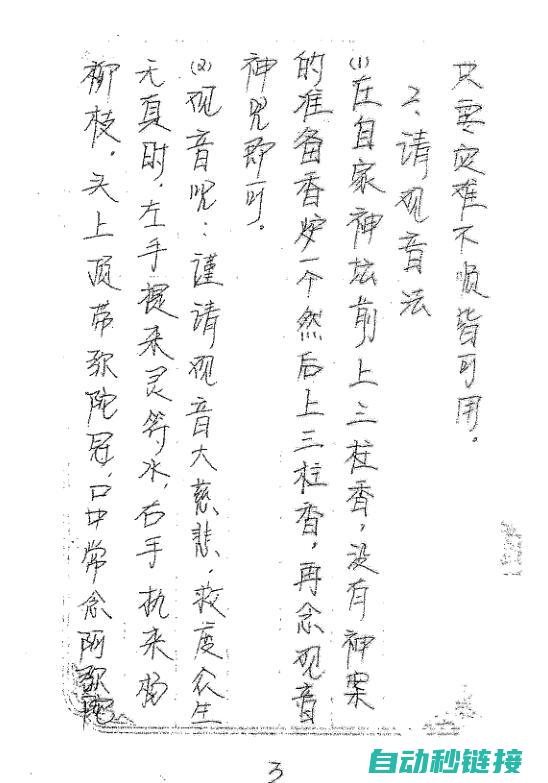 只要灾难不顺皆可用。
2、请观音法
(1)在自家神坛前上三柱香，没有神案
的准备香炉一个然后上三柱香，再念观音
神咒即可。
(2)观音咒：谨请观音大慈悲，救度众生
无真时，左手提来灵符水，右手执来杨
柳枝。头上顶带弥陀冠，口中常念阿弥陀
3
自动秒链接